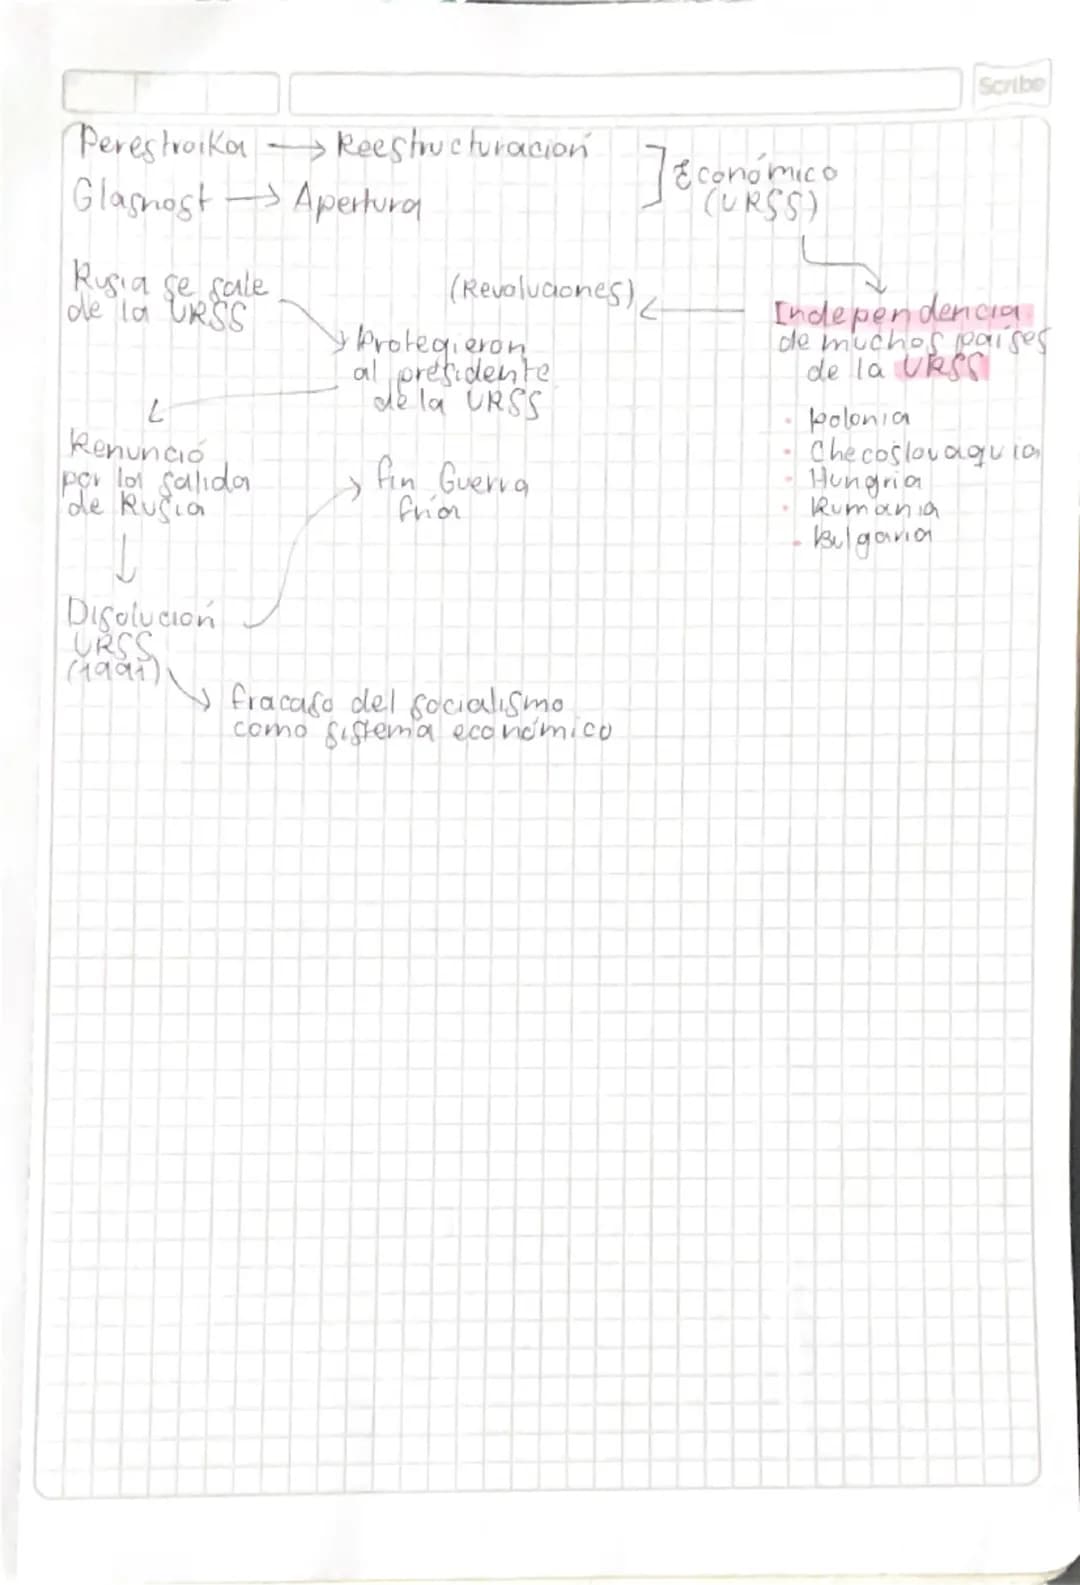 Scribe
Perestroika → Reestructuración
Glasnost → Apertura
] Económico
(URSS)
Independencia
de muchos países
de la URSS
· Polonia
· Checoslovaquia
· Hungría
· Rumania
· Bulgaria
(Revoluciones)
Rusia se sale
de la URSS
Protegieron
al presidente
de la URSS
Renunció
por la salida
de Rusia
Disolución
URSS
(1991)
fin Guerra
fría
fracaso del socialismo
como sistema económico